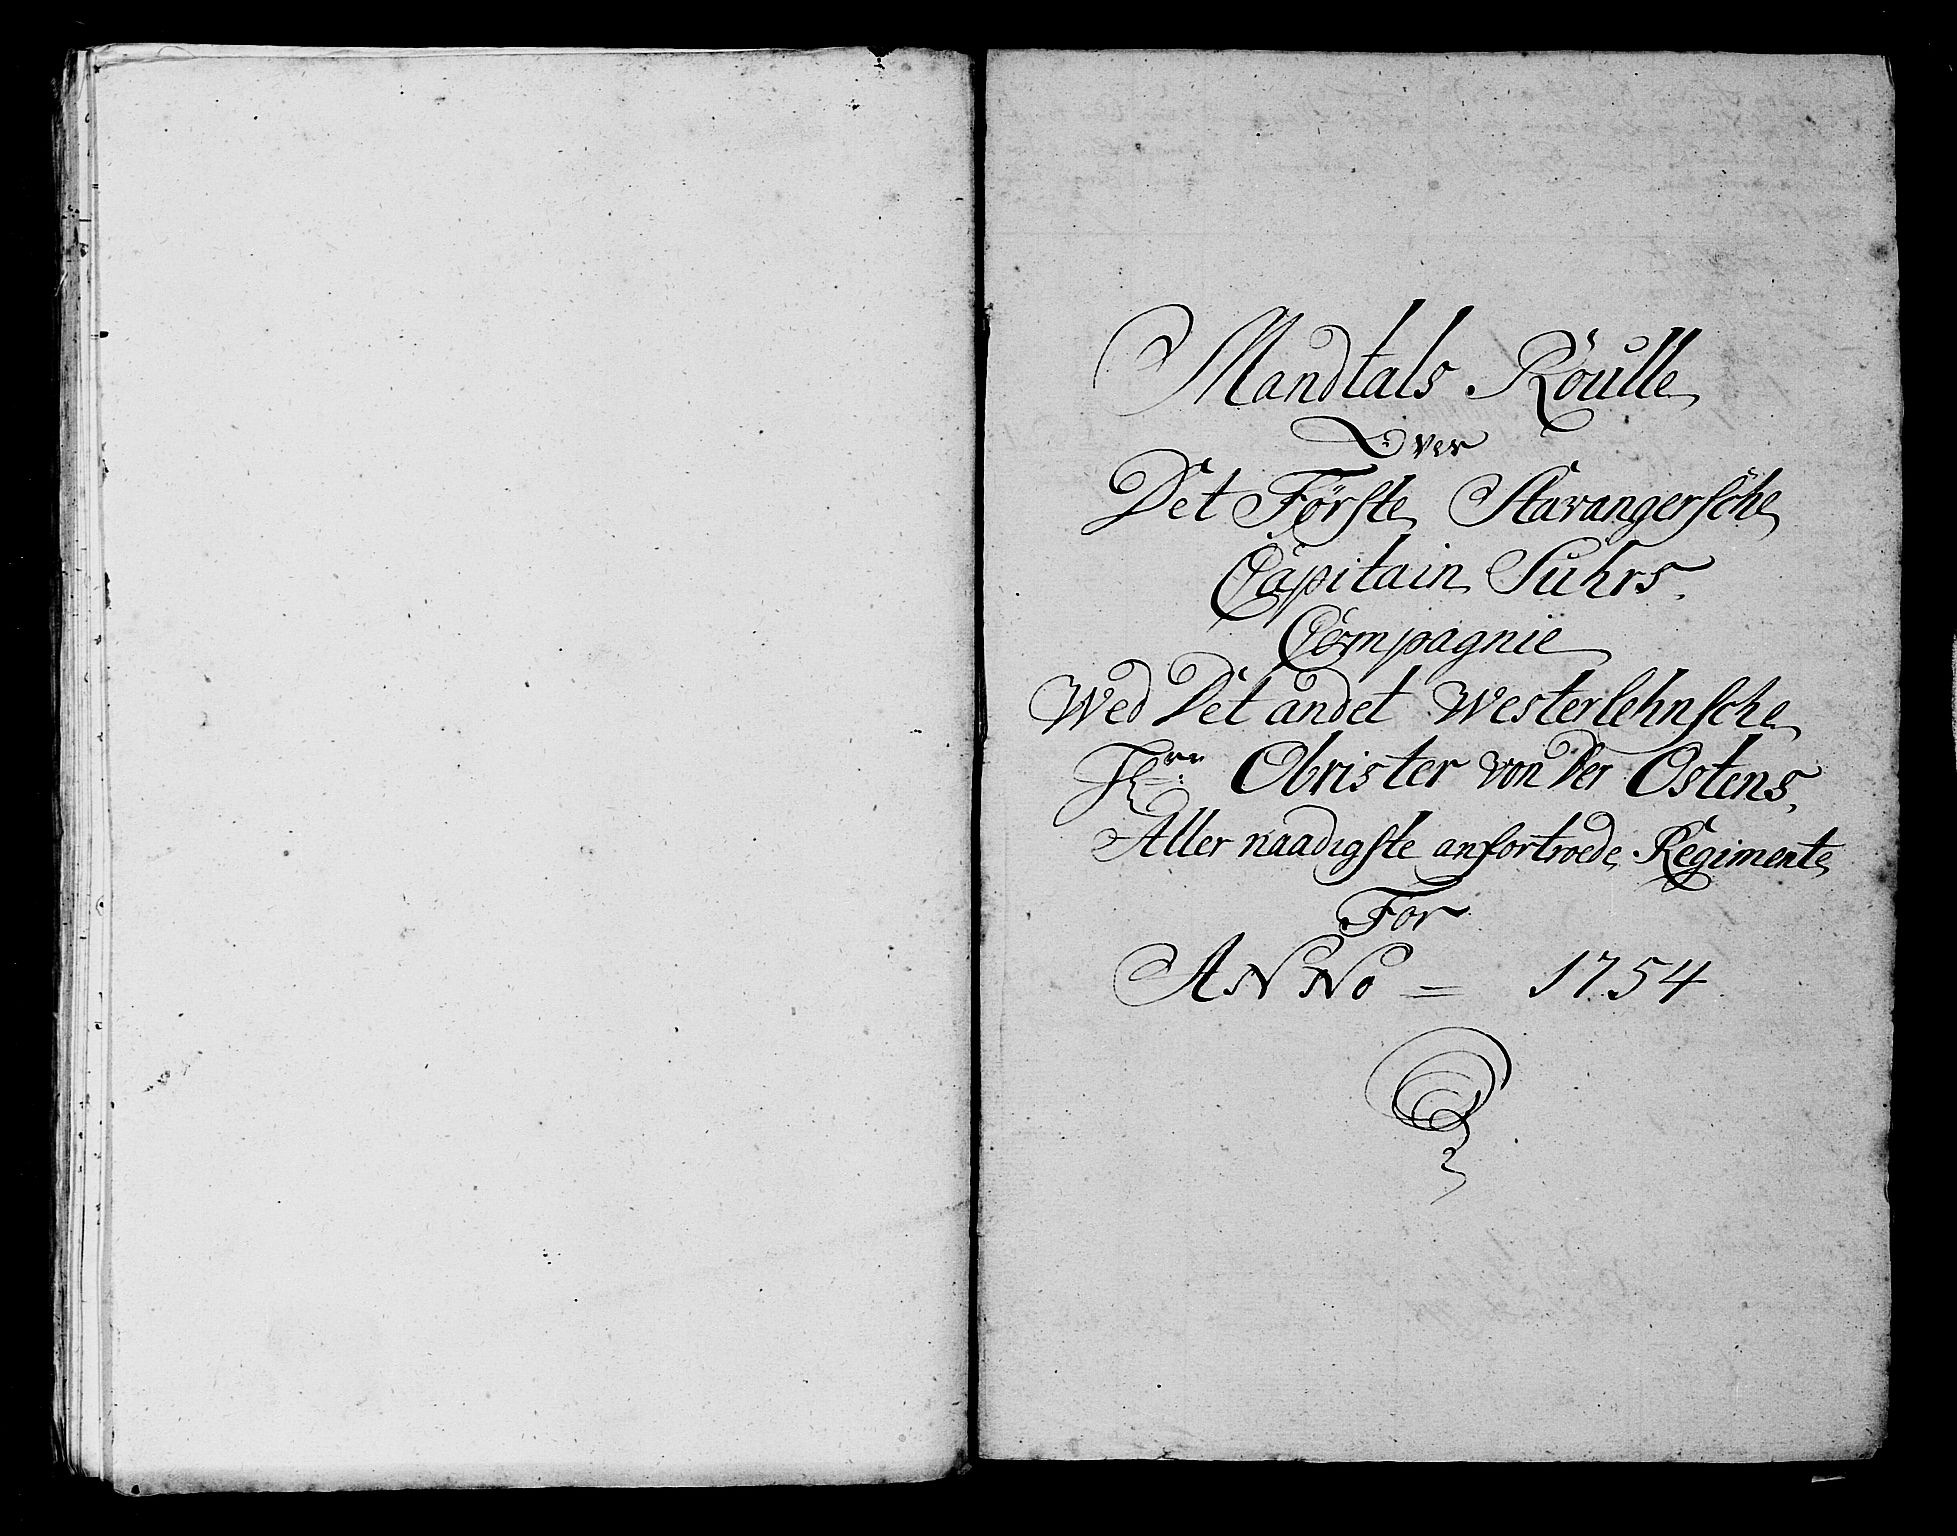 Mandtals Roulle
Over
Det Förste Stavangersche
Capitain Suhrs
Compagnie
Wed Det andet Westerlehnsche
Hrr: Obrister von Der Ostens,
Aller naadigste anfortroede Regimente
For
ANNo = 1754